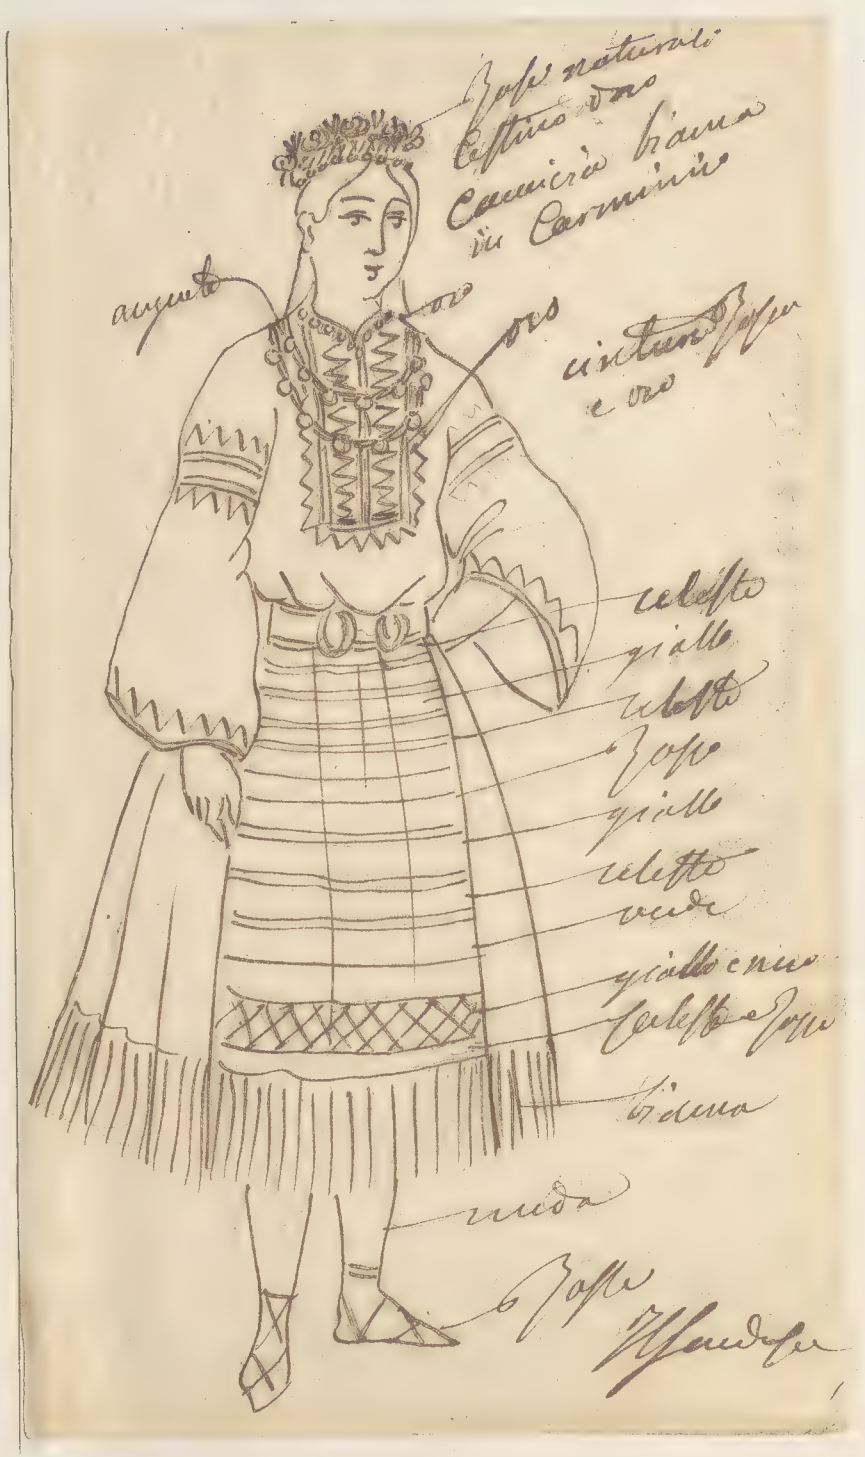 Rose naturali
Cestino d'oro
Camicia bianca
in Carminio
oro
oro
cintura Rossa
e oro
celeste
giallo
celeste
Rosso
giallo
celeste
verde
giallo e nero
Celeste e Rosso
bianca
nuda
Rosse